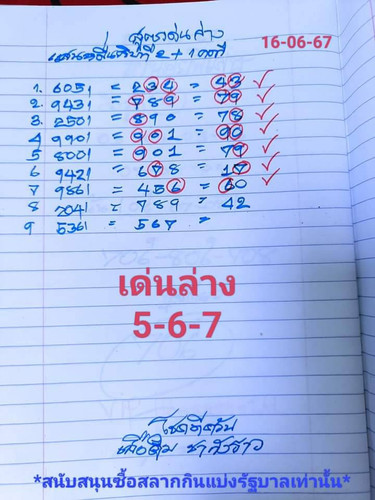 สูตรเด่นล่าง
16-06-67
1. 6051 = 234 = 43 ✓
2. 9431 = 789 = 79 ✓
3. 2501 = 890 = 78 ✓
4 9901 = 901 = 90 ✓
5 8001 = 901 = 79 ✓
6 9421 = 678 = 17 ✓
7 9861 = 456 = 60 ✓
8 7041 = 789 = 42
9 5361 = 567 =
เด่นล่าง
5-6-7
โชคดีครับ
*สนับสนุนซื้อสลากกินแบ่งรัฐบาลเท่านั้น*